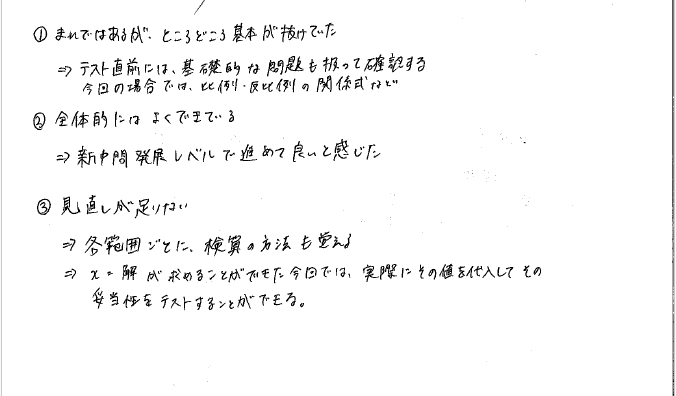 ① まれではあるが、ところどころ基本が抜けていた
⇒ テスト直前には、基礎的な問題も扱って確認する
今回の場合では、比例・反比例の関係式など
② 全体的にはよくできている
⇒ 新中問発展レベルで進めて良いと感じた
③ 見直しが足りない
⇒ 各範囲ごとに、検算の方法も覚える
⇒ x = 解が求めることができた今回では、実際にその値を代入してその
妥当性をテストすることができる。